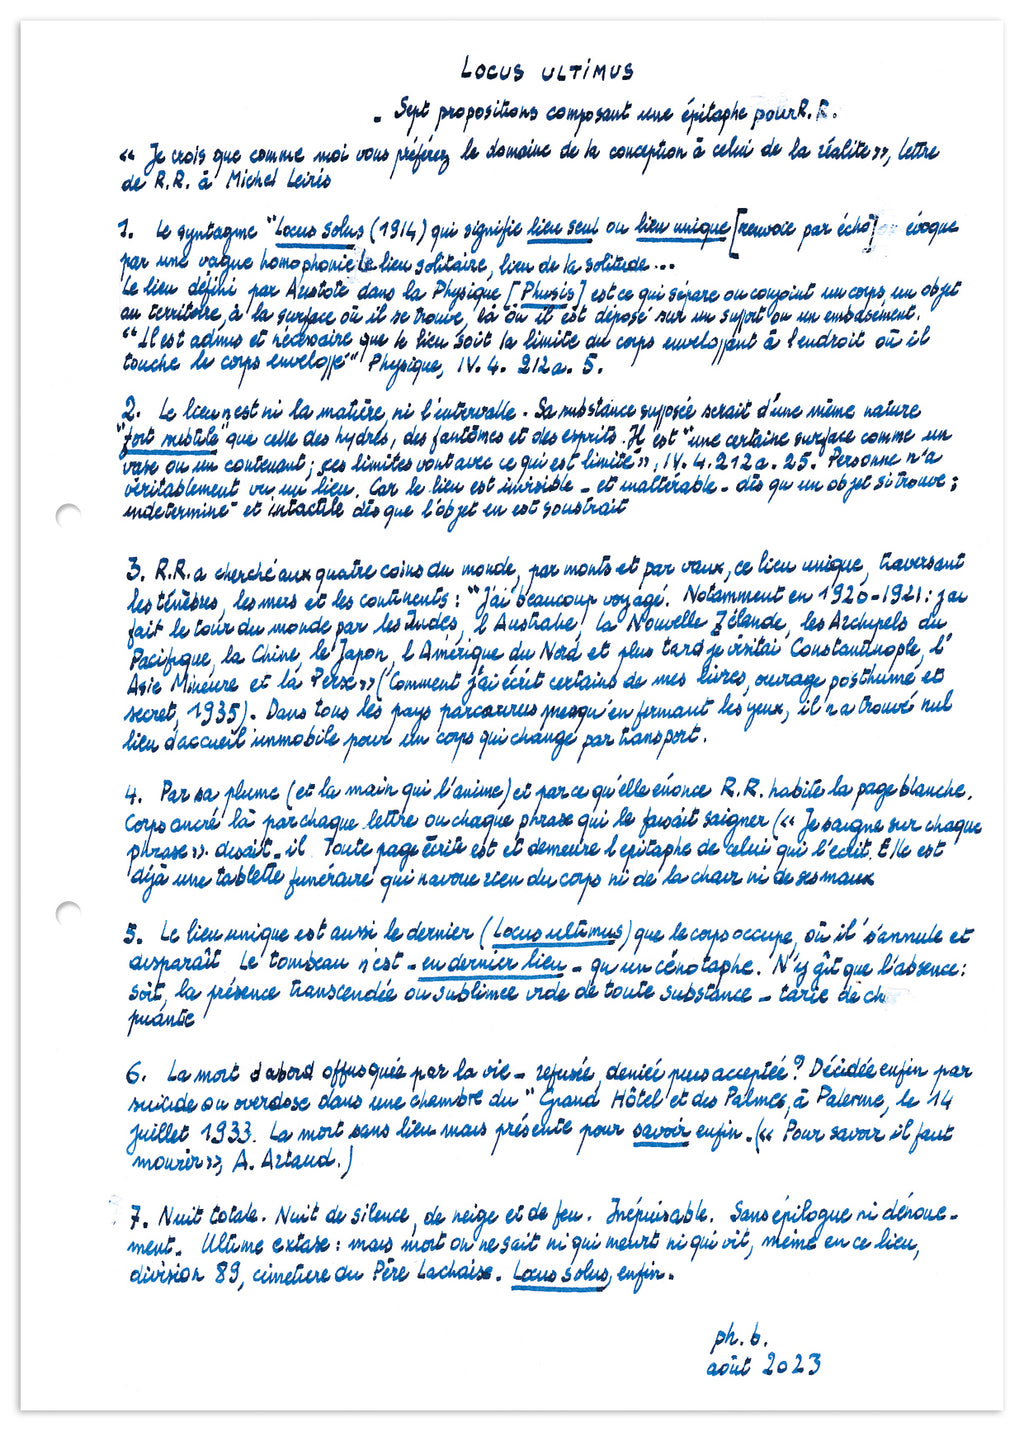 LOCUS ULTIMUS
- Sept propositions composant une épitaphe pour R. R.
« Je crois que comme moi vous préférez le domaine de la conception à celui de la réalité», lettre
de R.R. à Michel Leiris
1. Le syntagme "Locus Solus (1914) qui signifie lieu seul ou lieu unique [renvoie par écho] évoque
par une vague homophonie le lieu solitaire, lieu de la solitude...
Le lieu défini par Aristote dans la Physique [Phusis] est ce qui sépare ou conjoint un corps, un objet
au territoire, à la surface où il se trouve, là où il est déposé sur un suport ou un embasement.
"Il est admis et nécessaire que le lieu soit la limite du corps enveloppant à l'endroit où il
touche le corps enveloppé" Physique, IV. 4. 212a. 5.
2. Le lieu n'est ni la matière, ni l'intervalle. Sa substance supposée serait d'une même nature
"fort subtile" que celle des hydres, des fantômes et des esprits. Il est "une certaine surface comme un
vase ou un contenant ; ses limites vont avec ce qui est limité», IV. 4. 212a. 25. Personne n'a
véritablement vu un lieu. Car le lieu est invisible - et inaltérable - dès qu'un objet s'i trouve ;
indeterminé et intactile dès que l'objet en est soustrait
3. R.R. a cherché aux quatre coins du monde, par monts et par vaux, ce lieu unique, traversant
les ténèbres, les mers et les continents : "J'ai beaucoup voyagé. Notamment en 1920-1921 : j'ai
fait le tour du monde par les Indes, l'Australie, la Nouvelle Zélande, les Archipels du
Pacifique, la Chine, le Japon, l'Amérique du Nord et plus tard je visitai Constantinople, l'
Asie Mineure et la Perse» (Comment j'ai écrit certains de mes livres, ouvrage posthume et
secret, 1935). Dans tous les pays parcourus presqu'en fermant les yeux, il n'a trouvé nul
lieu d'accueil immobile pour un corps qui change par transport.
4. Par sa plume (et la main qui l'anime) et par ce qu'elle énonce R.R. habite la page blanche.
Corps ancré là par chaque lettre ou chaque phrase qui le faisait saigner (« Je saigne sur chaque
phrase» disait-il Toute page écrite est et demeure l'épitaphe de celui qui l'écrit. Elle est
déjà une tablette funéraire qui n'avoue rien du corps ni de la chair ni de ses maux
5. Le lieu unique est aussi le dernier (Locus ultimus) que le corps occupe, où il s'annule et
disparaît Le tombeau n'est - en dernier lieu - qu'un cénotaphe. N'y gît que l'absence :
soit, la présence transcendée ou sublimée vide de toute substance -
puante
6. La mort d'abord offusquée par la vie - refusée, deniée puis acceptée ? Décidée enfin par
suicide ou overdose dans une chambre du "Grand Hôtel et des Palmes, à Palerme, le 14
juillet 1933. La mort sans lieu mais présente pour savoir enfin. (« Pour savoir il faut
mourir», A. Artaud.)
7. Nuit totale. Nuit de silence, de neige et de feu. Inépuisable. Sans épilogue ni dénoue-
ment. Ultime extase : mais mort on ne sait ni qui meurt ni qui vit, même en ce lieu,
division 89, cimetière du Père Lachaise. Locus solus, enfin.
ph. b.
août 2023